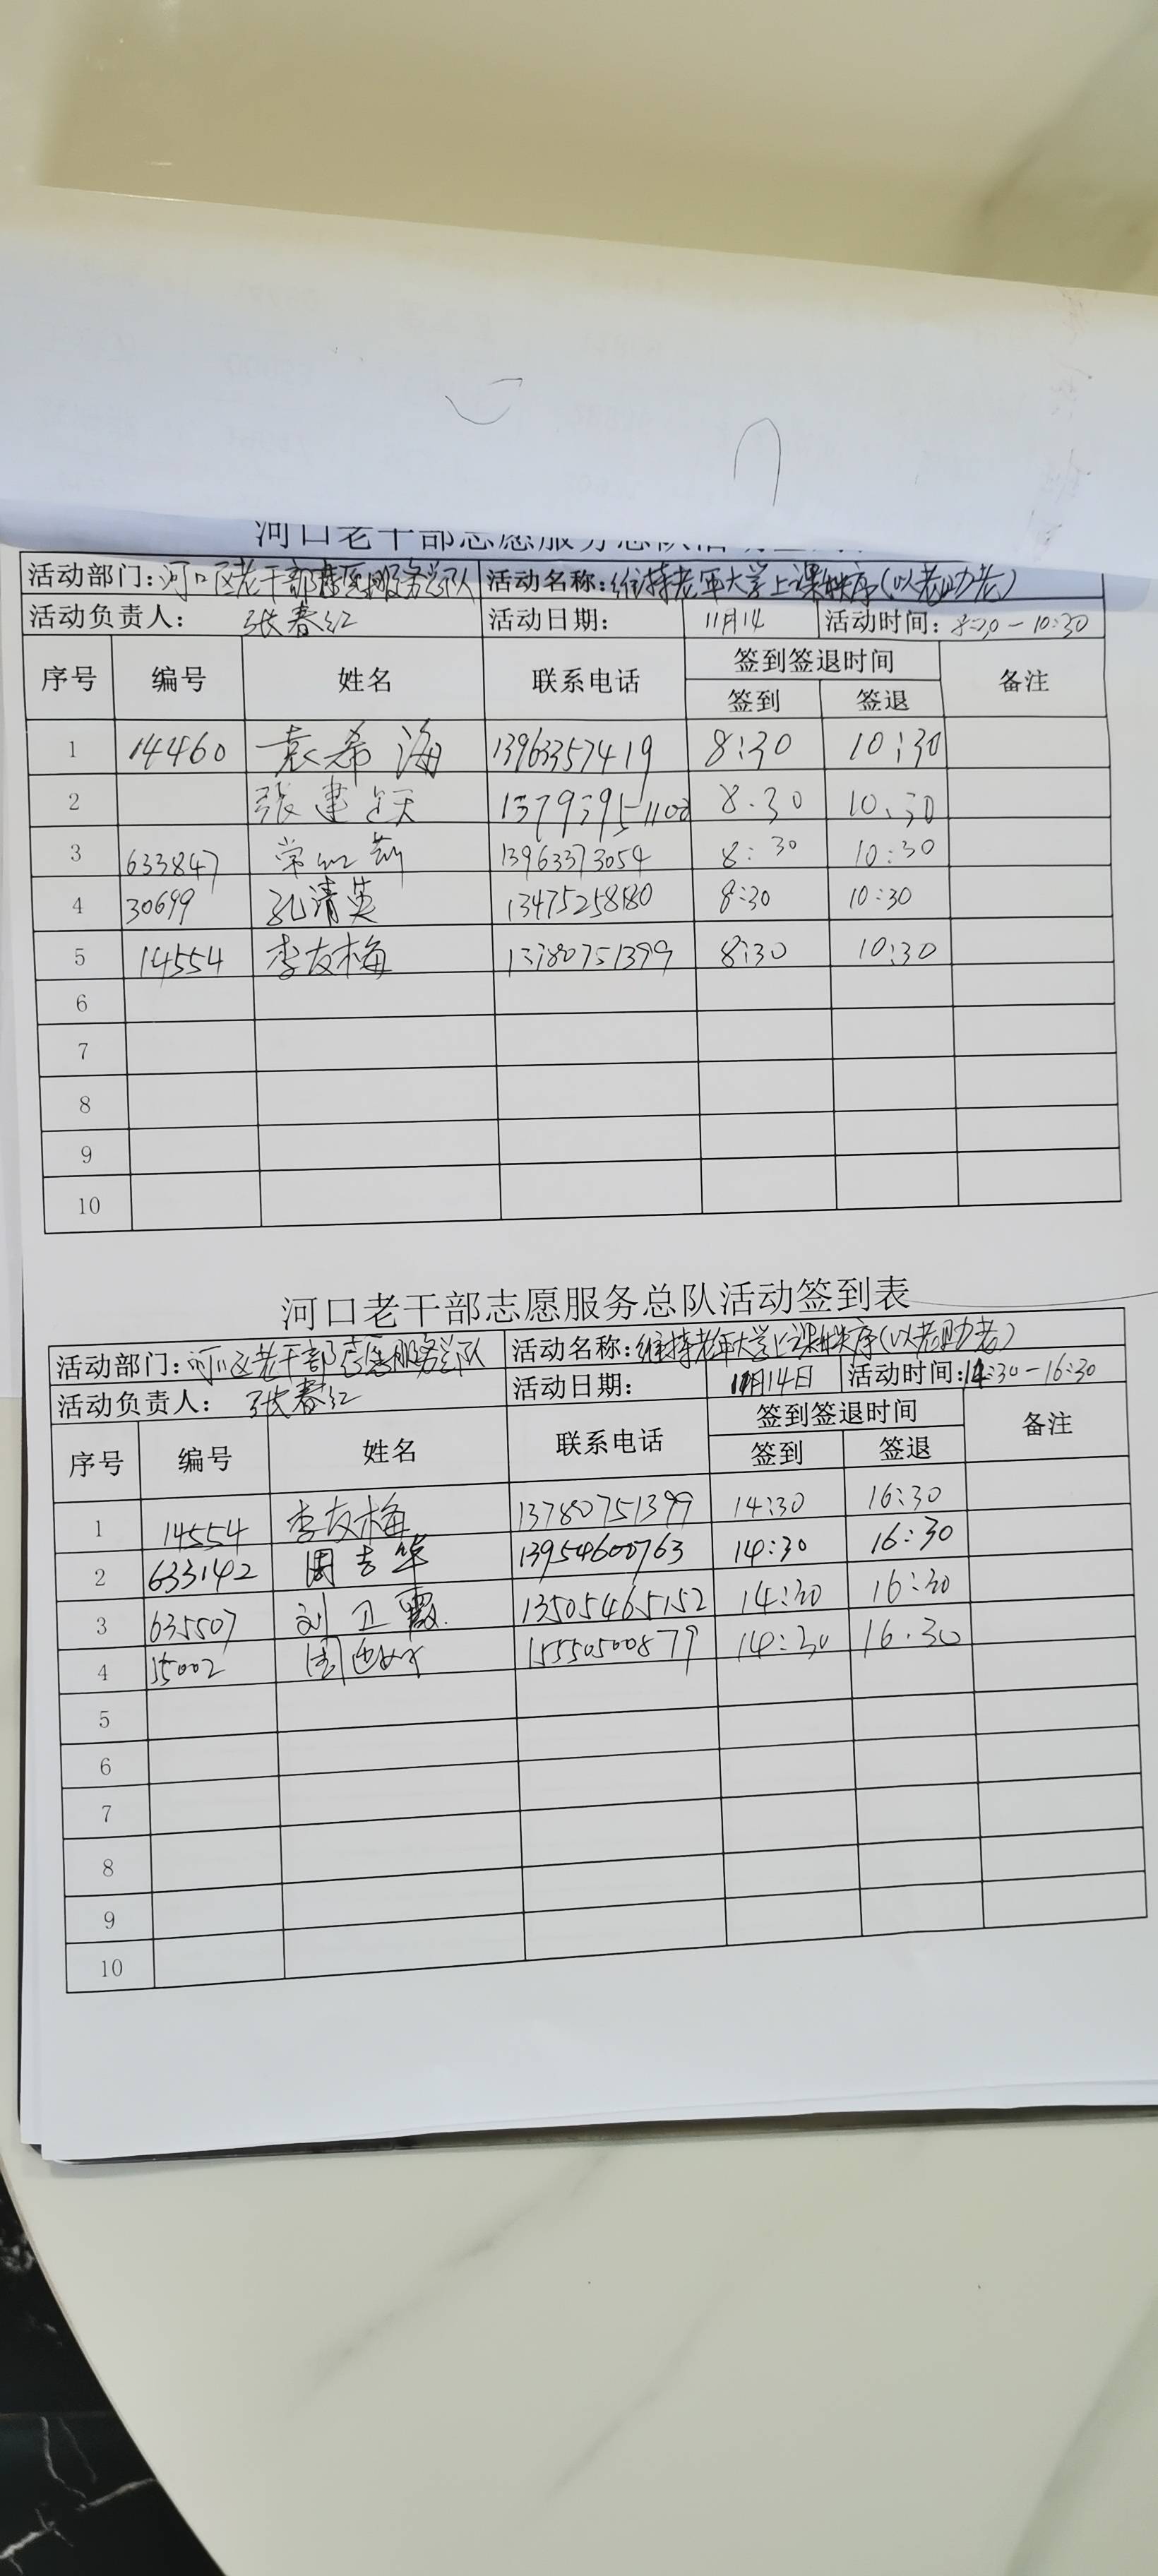 河口老干部志愿服务总队活动签到表
活动部门：河口区老干部志愿服务总队 活动名称：维持老年大学上课秩序（以老助老）
活动负责人： 张春红 活动日期： 11月14 活动时间：8:30-10:30
序号 编号 姓名 联系电话 签到签退时间 备注
签到 签退
1 14460 袁希海 13963357419 8:30 10:30
2 张建 8.30 10:30
3 633847 常 13963373054 8:30 10:30
4 30699 孔清英 13475258180 8:30 10:30
5 14554 李友梅 13780751399 8:30 10:30
6
7
8
9
10
河口老干部志愿服务总队活动签到表
活动部门：河口区老干部志愿服务总队 活动名称：维持老年大学上课秩序（以老助老）
活动负责人： 张春红 活动日期： 11月14日 活动时间：14:30-16:30
序号 编号 姓名 联系电话 签到签退时间 备注
签到 签退
1 14554 李友梅 13780751399 14:30 16:30
2 633142 周吉华 13954600763 14:30 16:30
3 635507 刘卫霞 13505465152 14:30 16:30
4 15002 周 15550500879 14:30 16.30
5
6
7
8
9
10